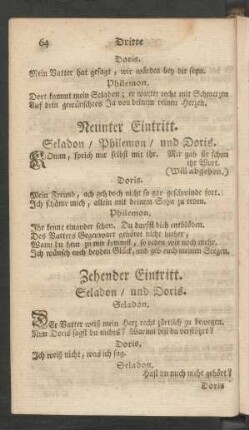 64 Dritte
Doris.
Mein Vatter hat gesagt, wir würden bey dir seyn.
Philemon.
Dort kommt mein Seladon; er wartet recht mit Schmertzen
Auf dein gewünschtes Ja von deinem reinen Hertzen.
Neunter Eintritt.
Seladon / Philemon / und Doris.
Komm, sprich nur selbst mit ihr. Mir gab sie schon
ihr Wort.
(Will abgehen.)
Doris.
Mein Freund, ach geh doch nicht so gar geschwinde fort.
Ich schäme mich, allein mit deinem Sohn zu reden.
Philemon.
Ihr kennt einander schon. Du darffst dich entblöden.
Des Vatters Gegenwart gehöret nicht hieher,
Wann du hast zu mir kommst, so reden wir noch mehr.
Ich wünsch euch beyden Glück, und geb euch meinen Seegen.
Zehender Eintritt.
Seladon / und Doris.
Seladon.
Der Vatter weiß mein Hertz recht zärtlich zu bewegen.
Nun Doris sagst du nichts? Warum bist du verstöhrt?
Doris.
Ich weiß nicht, was ich sag.
Seladon.
Hast du mich nicht gehört?
Doris